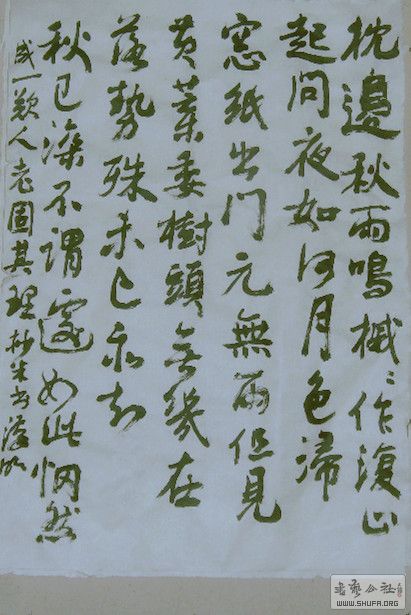 枕邊秋雨鳴槭〻作復止
起問夜如何月色滿
窓紙出門元無雨但見
黄葉委樹頭無幾在
落勢殊未已亦知
秋已深不謂遽如此惘然
成一歎人老固其理
书艺公社
WWW.SHUFA.ORG